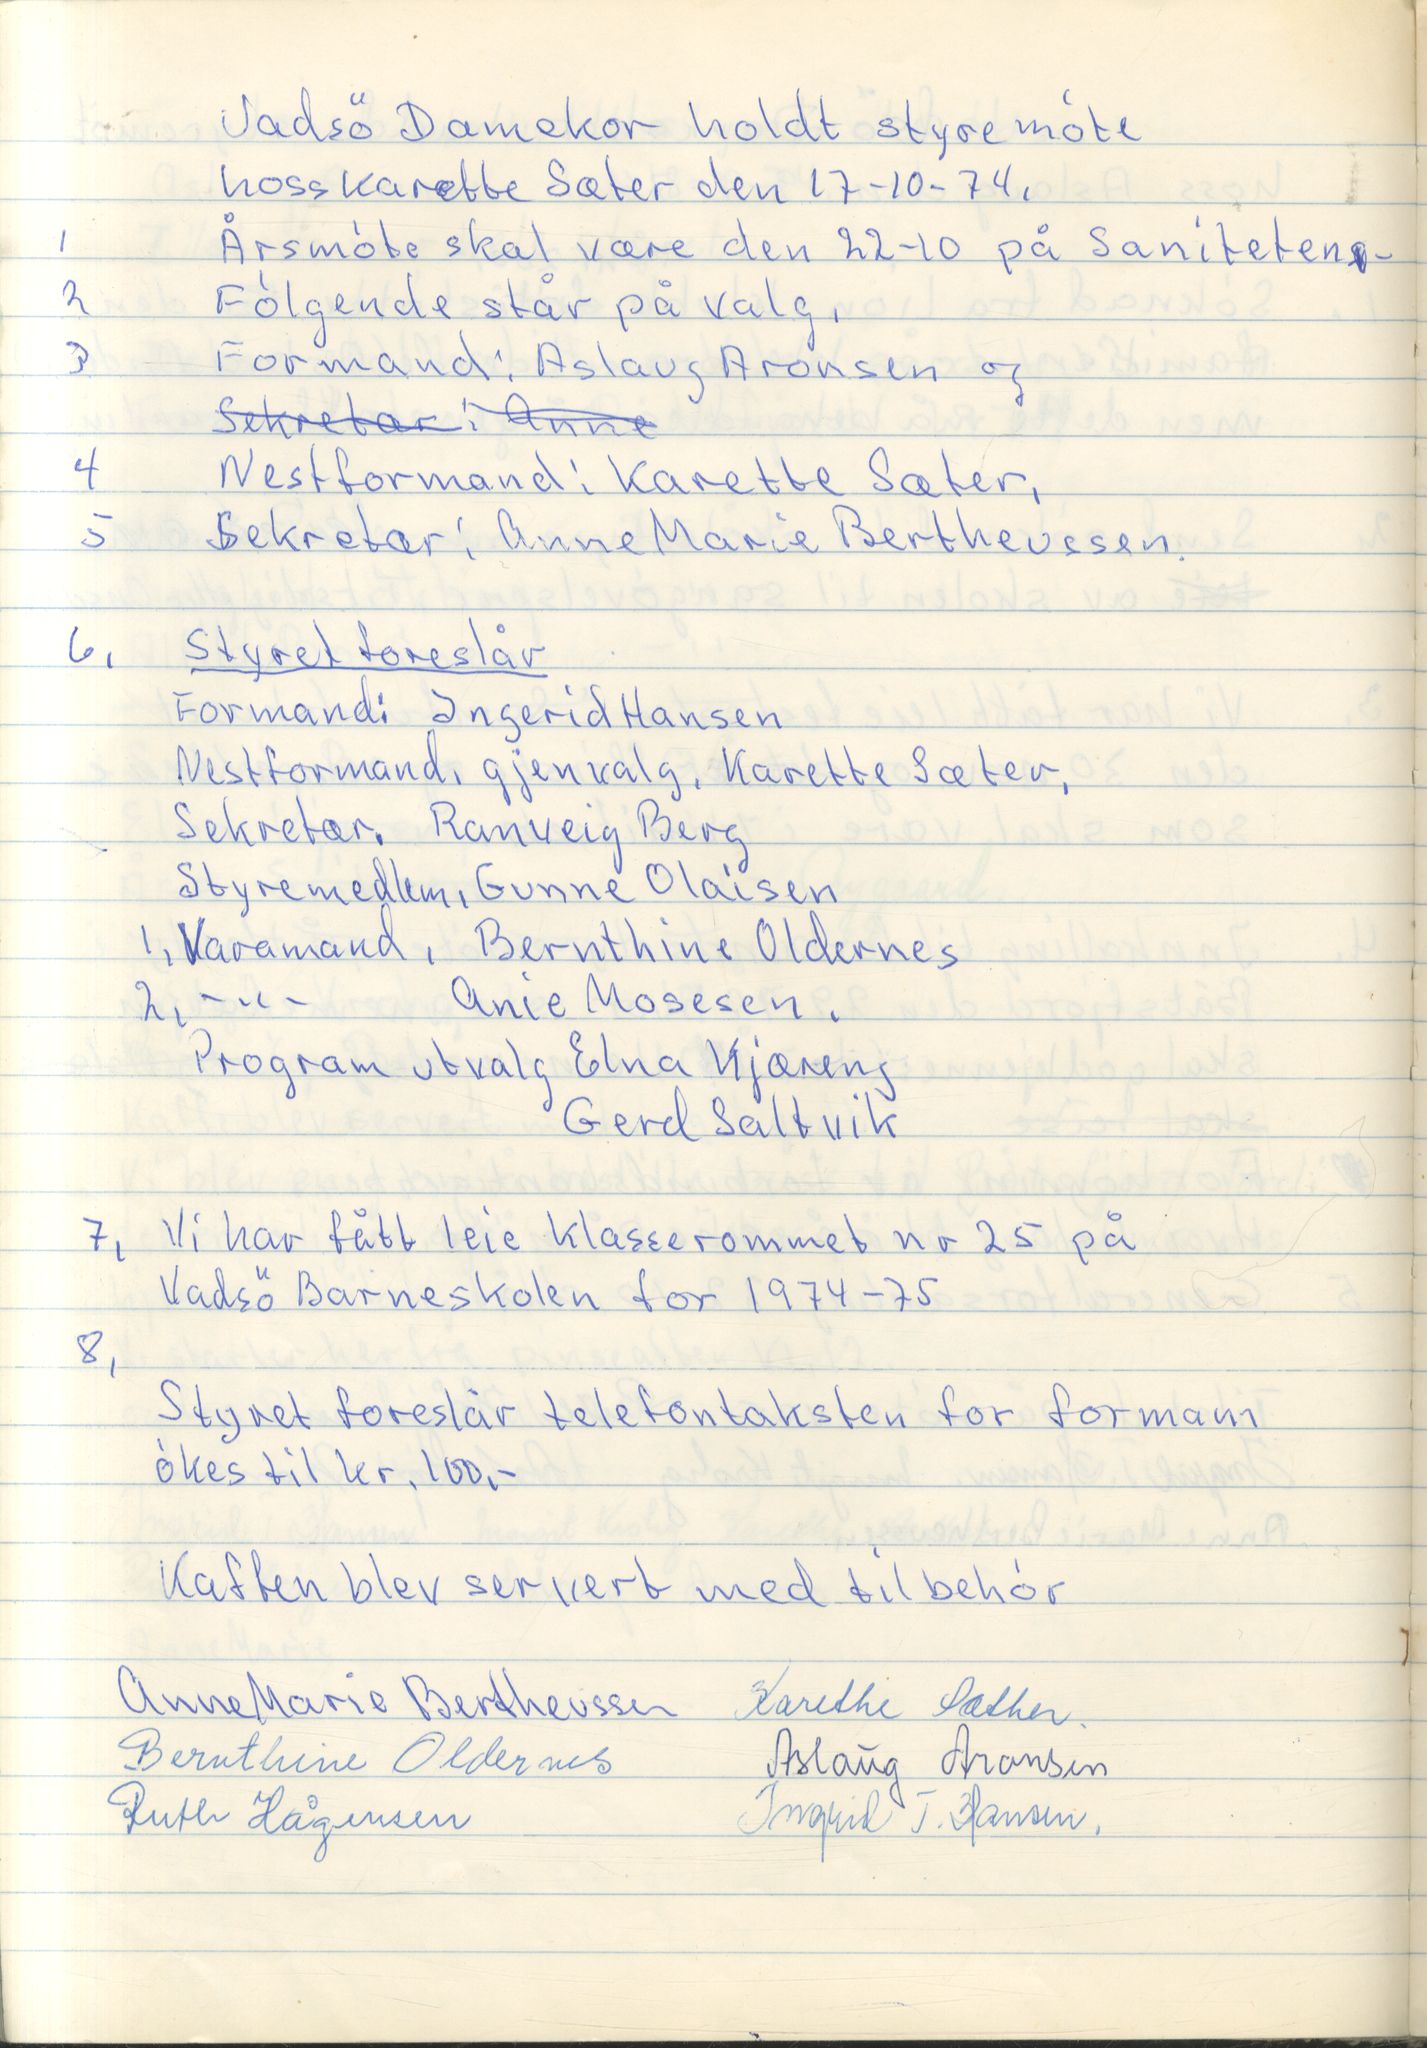 Vadsö Damekor holdt styremóte
hoss Karette Sæter den 17-10-74.
1 Årsmóte skal være den 22-10 på Saniteten.-
2 Fólgende står på valg.
3 Formand: Aslaug Aronsen og
Sekretær: Anne
4 Nestformand: Karette Sæter.
5 Sekretær: Anne Marie Bertheussen.
6. Styret foreslår
Formand: Ingerid Hansen
Nestformand. gjenvalg. Karette Sæter.
Sekretær. Ranveig Berg
Styremedlem. Gunne Olaisen
1. Varamand. Bernthine Oldernes
2. -"- Anie Mosesen.
Program utvalg Elna Kjæreng
Gerd Saltvik
7. Vi har fått leie klasserommet nr 25 på
Vadsö Barneskolen for 1974-75
8.
Styret foreslår telefontaksten for formann
ókes til kr. 100.-
Kaffen blev servert med tilbehór
Anne Marie Bertheussen Karethe Sæther.
Bernthine Oldernes Aslaug Aronsen
Ruth Hågensen Ingrid T. Hansen.